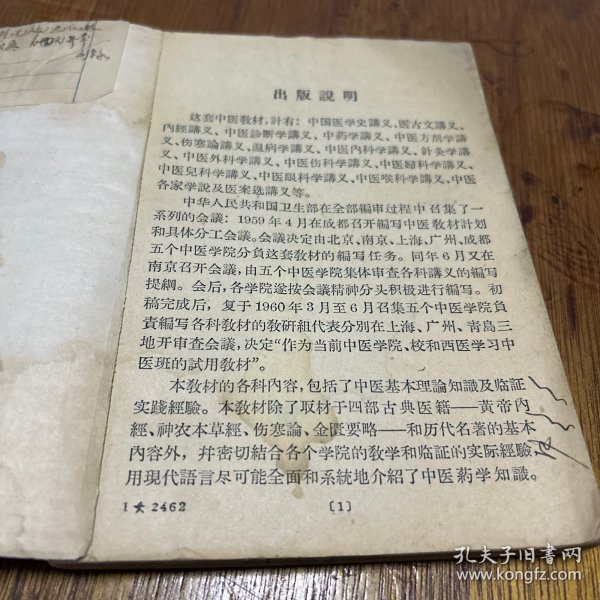 出版說明
这套中医敎材，計有：中国医学史講义、医古文講义、
內經講义、中医診断学講义、中药学講义、中医方剂学講
义、伤寒論講义、温病学講义、中医內科学講义、針灸学講
义、中医外科学講义、中医伤科学講义、中医婦科学講义、
中医兒科学講义、中医眼科学講义、中医喉科学講义、中医
各家学說及医案选講义等。
中华人民共和国卫生部在全部編审过程中召集了一
系列的会議：1959年4月在成都召开編写中医敎材計划
和具体分工会議。会議决定由北京、南京、上海、广州、成都
五个中医学院分負这套敎材的編写任务。同年6月又在
南京召开会議，由五个中医学院集体审查各科講义的編写
提綱。会后，各学院遂按会議精神分头积极进行編写。初
稿完成后，复于1960年3月至6月召集五个中医学院負
責編写各科敎材的敎研組代表分別在上海、广州、靑島三
地开审查会議，决定“作为当前中医学院、校和西医学习中
医班的試用敎材”。
本敎材的各科內容，包括了中医基本理論知識及临証
实践經驗。本敎材除了取材于四部古典医籍——黄帝內
經、神农本草經、伤寒論、金匱要略——和历代名著的基本
內容外，幷密切結合各个学院的敎学和临証的实际經驗，
用現代語言尽可能全面和系統地介紹了中医葯学知識。
1★2462
〔1〕
孔夫子旧书网
www.kongfz.com